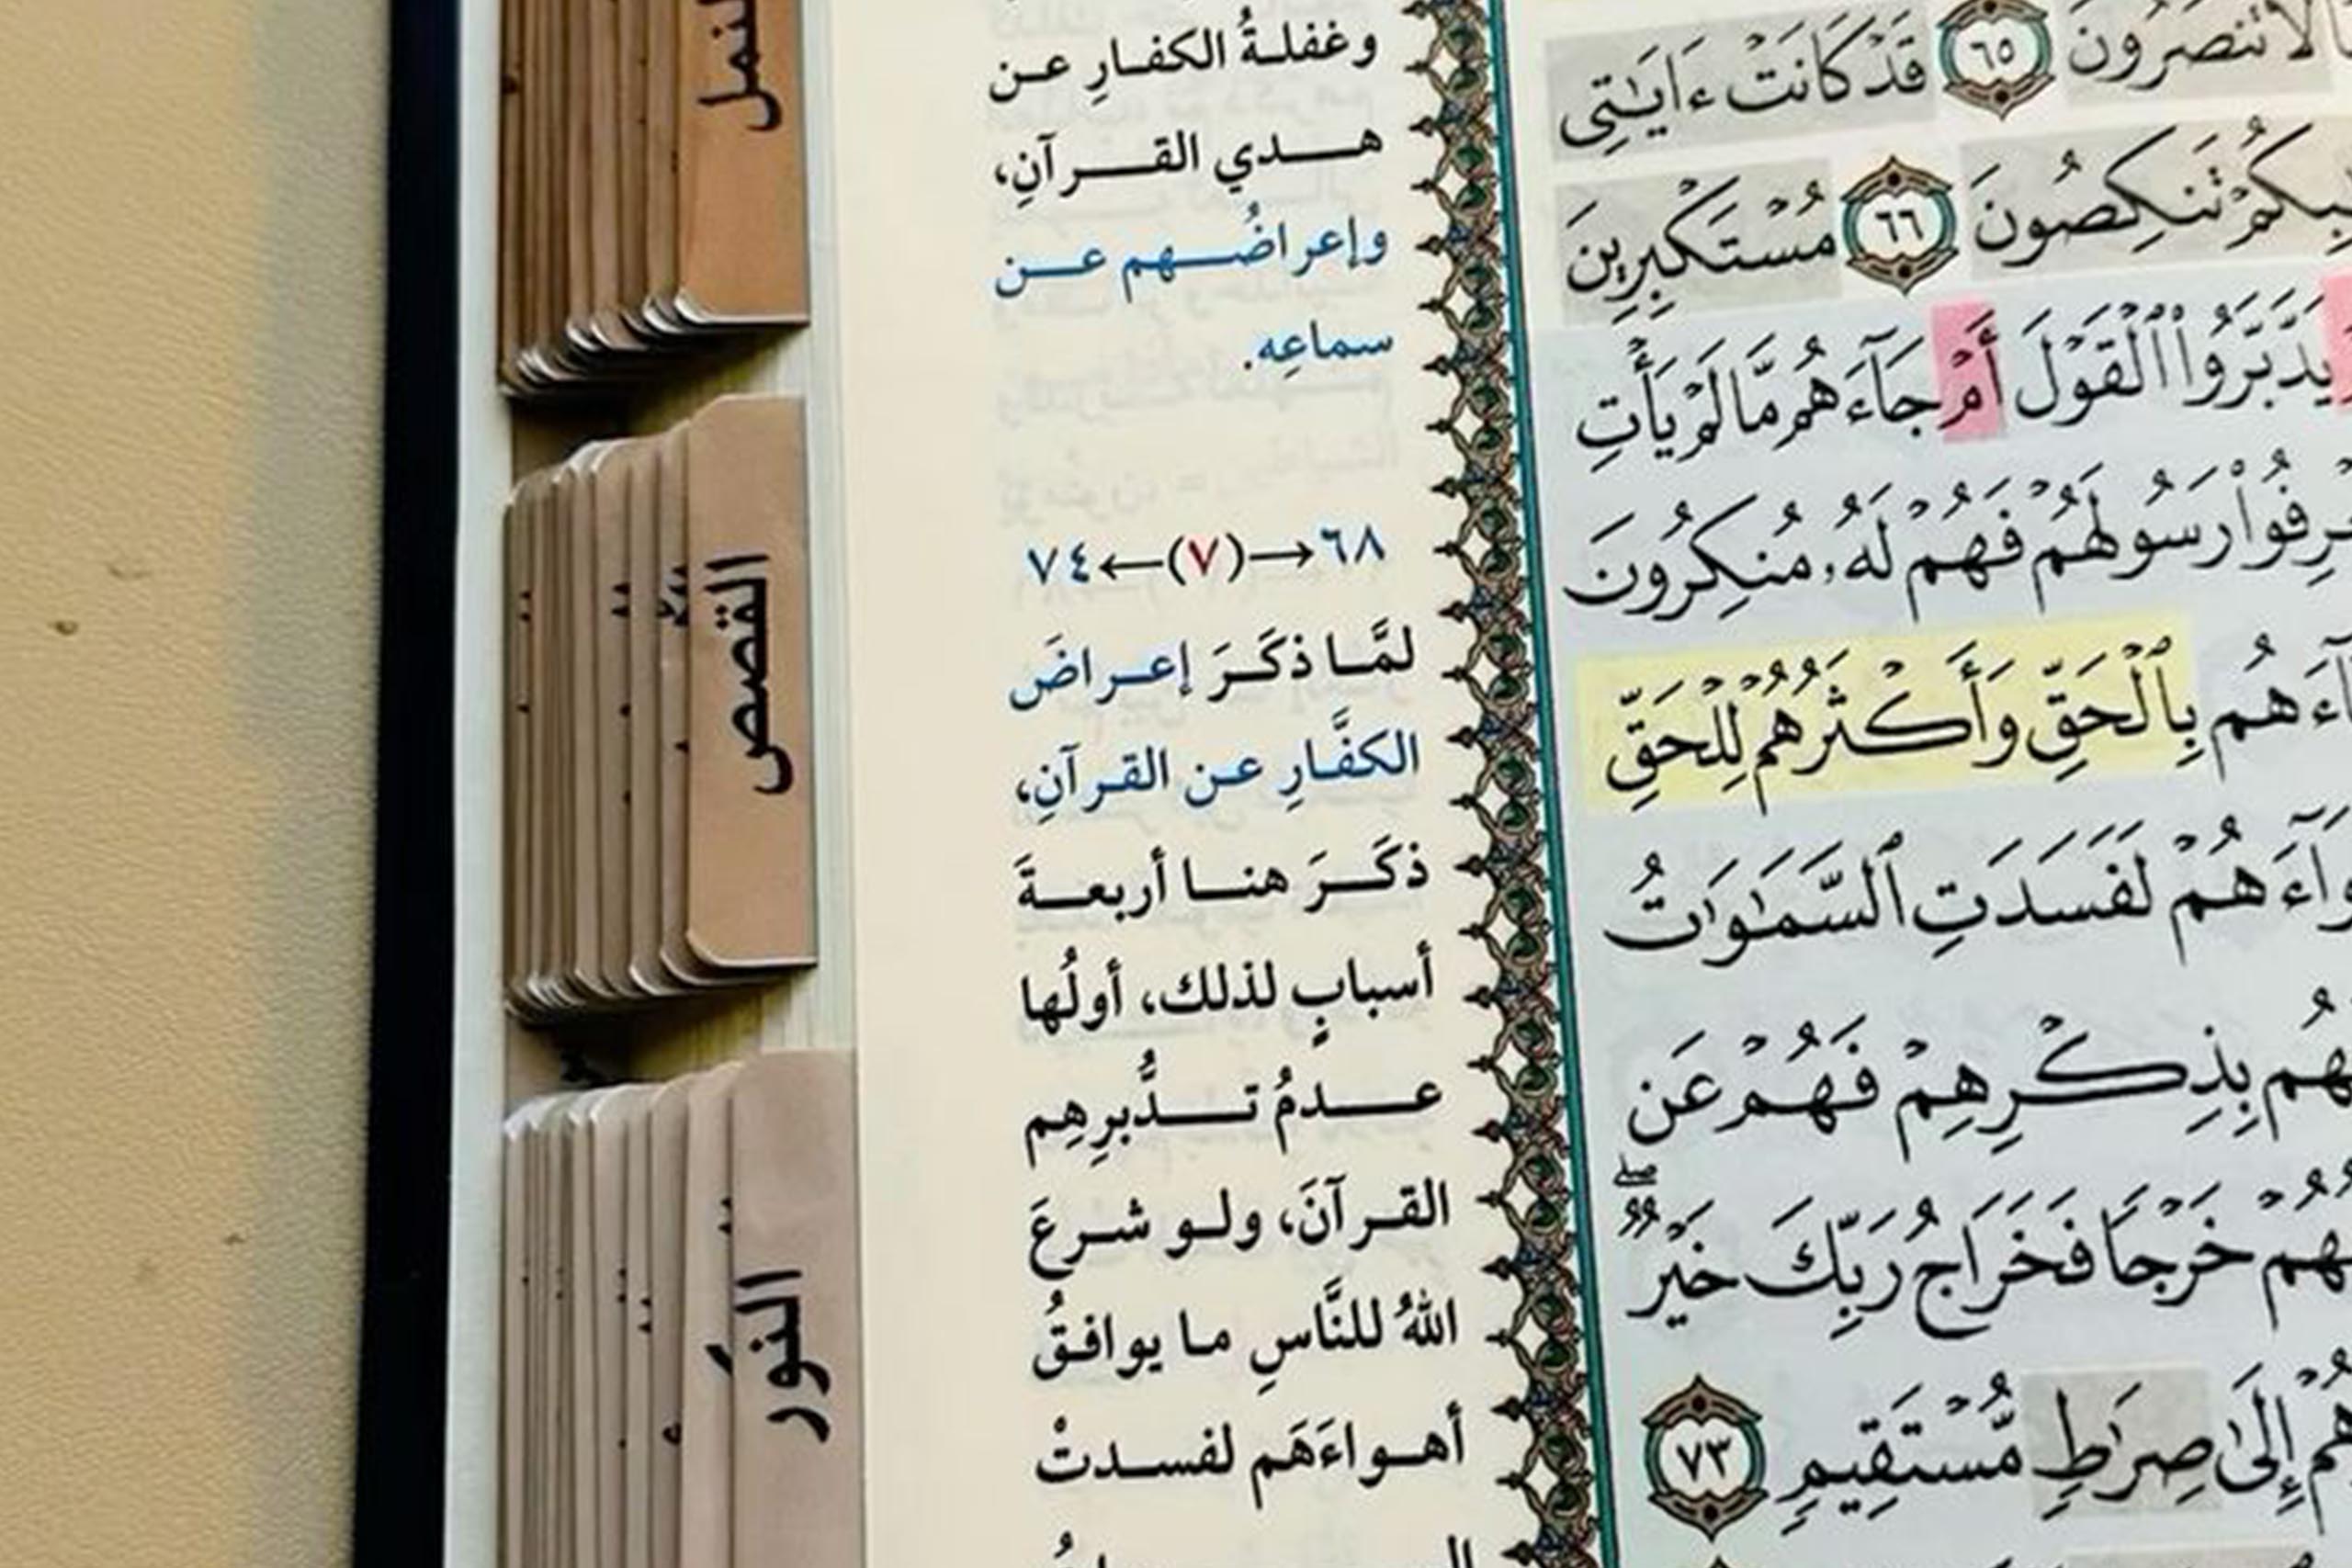 لَا تُنصَرُونَ ٦٥ قَدْ كَانَتْ ءَايَٰتِى
تَنكِصُونَ ٦٦ مُسْتَكْبِرِينَ
يَدَّبَّرُوا۟ ٱلْقَوْلَ أَمْ جَآءَهُم مَّا لَمْ يَأْتِ
رَسُولَهُمْ فَهُمْ لَهُۥ مُنكِرُونَ
بِٱلْحَقِّ وَأَكْثَرُهُمْ لِلْحَقِّ
لَفَسَدَتِ ٱلسَّمَٰوَٰتُ
بِذِكْرِهِمْ فَهُمْ عَن
خَرْجًا فَخَرَاجُ رَبِّكَ خَيْرٌ ۖ
إِلَىٰ صِرَٰطٍ مُّسْتَقِيمٍ ٧٣
وغفلةُ الكفارِ عن
هدي القرآنِ،
وإعراضُهم عن
سماعِه.
٦٨→(٧)←٧٤
لمَّا ذكَرَ إعراضَ
الكفَّارِ عن القرآنِ،
ذكَرَ هنا أربعةَ
أسبابٍ لذلك، أولُها
عدمُ تدُّبرِهِم
القرآنَ، ولو شرعَ
اللهُ للنَّاسِ ما يوافقُ
أهواءَهَم لفسدتْ
النمل
القصص
النور